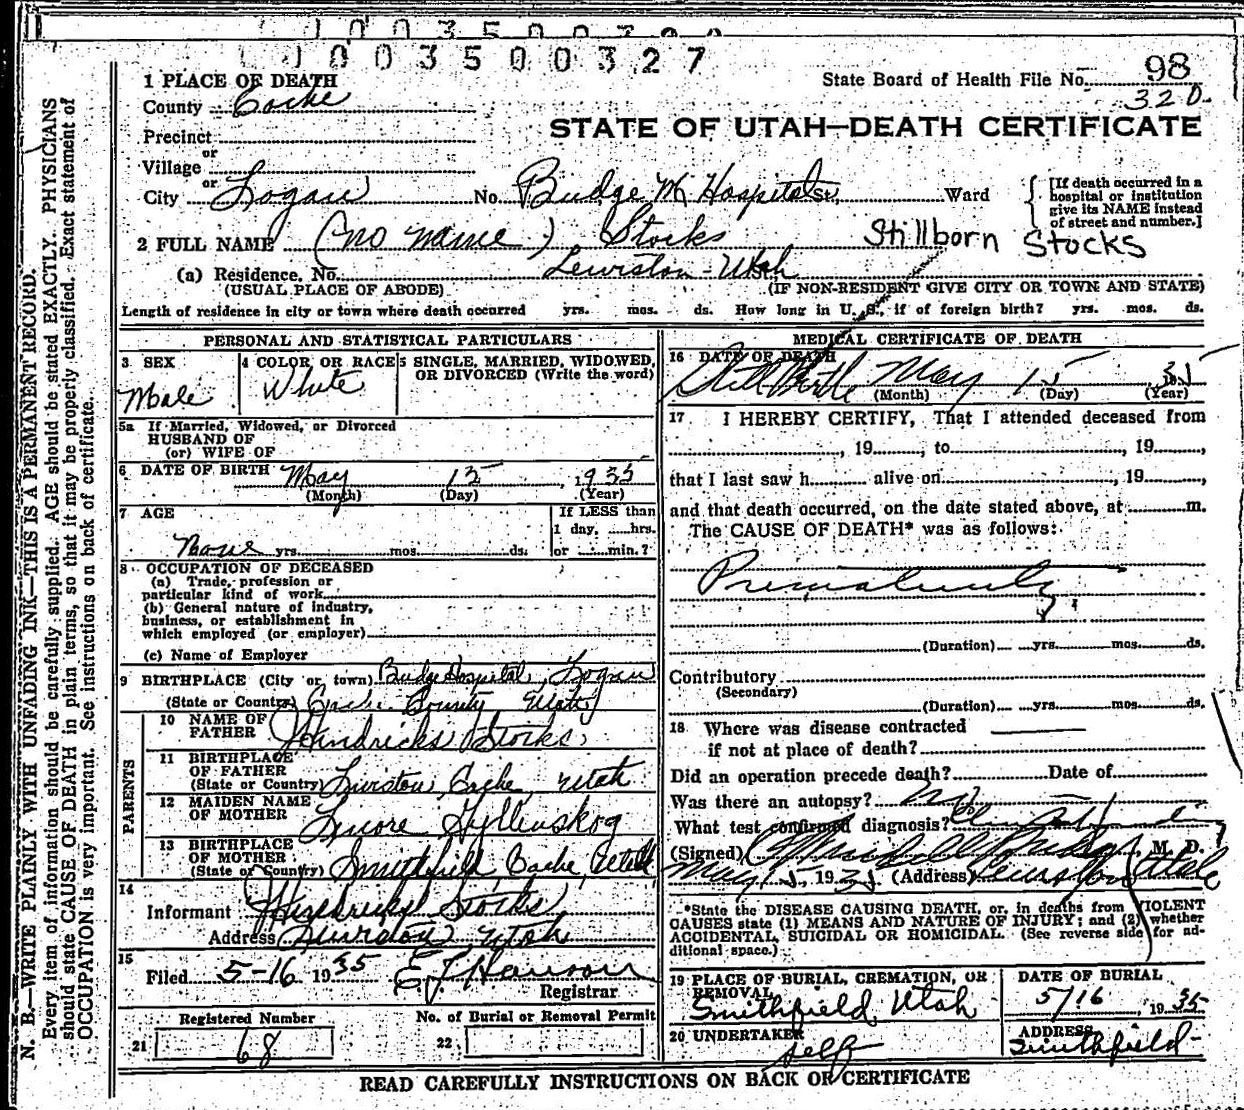 1 0 0 3 5 0 0 3 2 7
1 PLACE OF DEATH
State Board of Health File No. 98
County Cache
320.
STATE OF UTAH—DEATH CERTIFICATE
Precinct
or
Village
or
City Logan No. Budge M Hospital St. Ward
[If death occurred in a
hospital or institution
give its NAME instead
of street and number.]
2 FULL NAME (no name) Stocks
Stillborn Stocks
(a) Residence, No. Lewiston - Utah
(USUAL PLACE OF ABODE)
(IF NON-RESIDENT GIVE CITY OR TOWN AND STATE)
Length of residence in city or town where death occurred yrs. mos. ds. How long in U. S., if of foreign birth? yrs. mos. ds.
PERSONAL AND STATISTICAL PARTICULARS
3 SEX
Male
4 COLOR OR RACE
White
5 SINGLE, MARRIED, WIDOWED,
OR DIVORCED (Write the word)
5a If Married, Widowed, or Divorced
HUSBAND OF
(or) WIFE OF
6 DATE OF BIRTH May 15, 1935
(Month) (Day) (Year)
7 AGE
None yrs. mos. ds.
If LESS than
1 day, hrs.
or min.?
8 OCCUPATION OF DECEASED
(a) Trade, profession or
particular kind of work
(b) General nature of industry,
business, or establishment in
which employed (or employer)
(c) Name of Employer
9 BIRTHPLACE (City or town) Budge Hospital, Logan
(State or Country) Cache County Utah
PARENTS
10 NAME OF
FATHER Hendricks Stocks
11 BIRTHPLACE
OF FATHER
(State or Country) Lewiston, Cache, Utah
12 MAIDEN NAME
OF MOTHER Lenore Gyllenskog
13 BIRTHPLACE
OF MOTHER
(State or Country) Smithfield, Cache, Utah
14
Informant Hendricks Stocks
Address Lewiston, Utah
15
Filed 5-16 1935
Registrar
Registered Number
21 68
No. of Burial or Removal Permit
22
MEDICAL CERTIFICATE OF DEATH
16 DATE OF DEATH
Still Birth May 15 1935
(Month) (Day) (Year)
17 I HEREBY CERTIFY, That I attended deceased from
, 19 , to , 19 ,
that I last saw h alive on , 19 ,
and that death occurred, on the date stated above, at m.
The CAUSE OF DEATH* was as follows:
Prematurity
(Duration) yrs. mos. ds.
Contributory
(Secondary)
(Duration) yrs. mos. ds.
18 Where was disease contracted
if not at place of death?
Did an operation precede death? Date of
Was there an autopsy? no
What test confirmed diagnosis?
(Signed) , M. D.
May 15, 1935 (Address) Lewiston Utah
*State the DISEASE CAUSING DEATH, or, in deaths from VIOLENT
CAUSES state (1) MEANS AND NATURE OF INJURY; and (2) whether
ACCIDENTAL, SUICIDAL OR HOMICIDAL. (See reverse side for ad-
ditional space.)
19 PLACE OF BURIAL, CREMATION, OR
REMOVAL
Smithfield, Utah
DATE OF BURIAL
5/16, 1935
20 UNDERTAKER
self
ADDRESS
Smithfield
READ CAREFULLY INSTRUCTIONS ON BACK OF CERTIFICATE
N. B.—WRITE PLAINLY WITH UNFADING INK—THIS IS A PERMANENT RECORD.
Every item of information should be carefully supplied. AGE should be stated EXACTLY. PHYSICIANS
should state CAUSE OF DEATH in plain terms, so that it may be properly classified. Exact statement of
OCCUPATION is very important. See instructions on back of certificate.